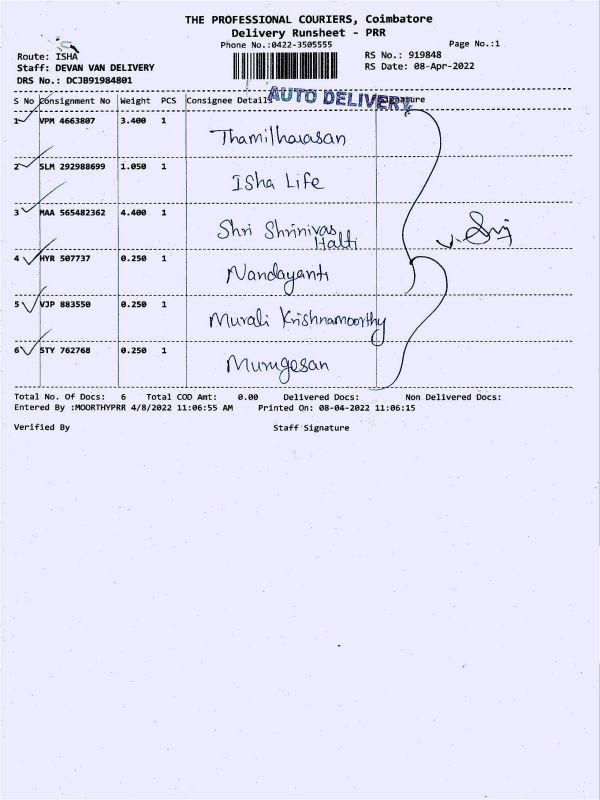 THE PROFESSIONAL COURIERS, Coimbatore
Delivery Runsheet - PRR
Phone No.:0422-3505555 Page No.:1
Route: ISHA RS No.: 919848
Staff: DEVAN VAN DELIVERY RS Date: 08-Apr-2022
DRS No.: DCJB91984801
AUTO DELIVERY
S No Consignment No Weight PCS Consignee Details Signature
1 VPM 4663807 3.400 1 Thamilharasan
2 SLM 292988699 1.050 1 Isha Life
3 MAA 565482362 4.400 1 Shri Shrinivas
4 HYR 507737 0.250 1 Nandayanti
5 VJP 883550 0.250 1 Murali Krishnamoorthy
6 STY 762768 0.250 1 Murugesan
Total No. Of Docs: 6 Total COD Amt: 0.00 Delivered Docs: Non Delivered Docs:
Entered By :MOORTHYPRR 4/8/2022 11:06:55 AM Printed On: 08-04-2022 11:06:15
Verified By Staff Signature